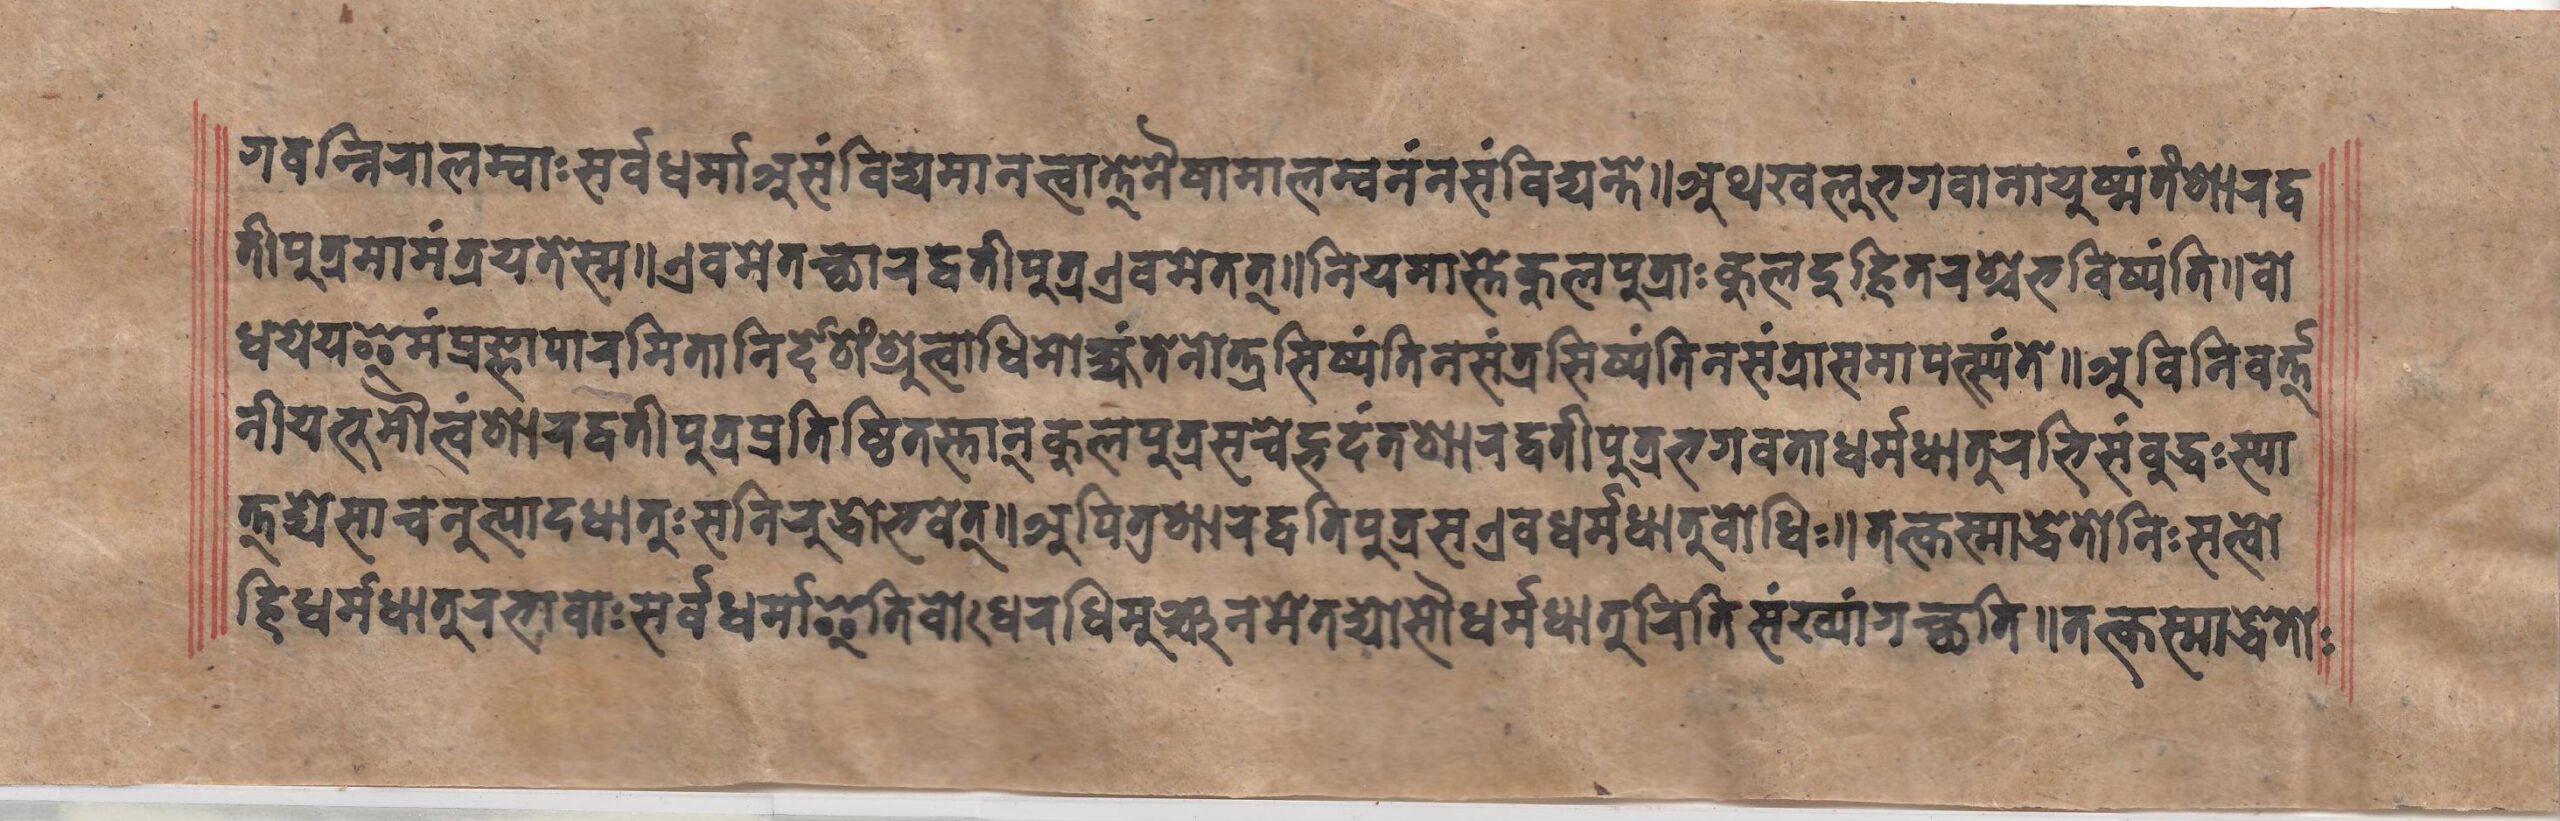 गवन्निरालम्वाः सर्वधर्मा असंविद्यमानत्वात्तेनैषामालम्वनं न संविद्यन्ते॥ अथ खलु भगवानायुष्मंतं शारद्व
तीपुत्रमामंत्रयतेस्म॥ एवमेतच्छारद्वतीपुत्र एवमेतत्॥ नियमास्ते कुलपुत्राः कुलदुहितरश्च भविष्यंति॥ वो
धये य इमं प्रज्ञापारमितानिर्देशं श्रुत्वाधिमोक्ष्यंते नोत्त्रसिष्यंति न संत्रसिष्यंति न संत्रासमापत्स्यंते॥ अविनिवर्त्त
नीयभूमौ त्वं शारद्वतीपुत्र प्रतिष्ठितस्तान् कुलपुत्र सचेद्भदंत शारद्वतीपुत्र भगवता धर्मधातुरभिसंवुद्धः स्या
त्तद्ये साचनुत्पादधातुः स निरुद्धो भवेत्॥ अपि तु शारद्वतिपुत्र स एव धर्मधातु वोधिः॥ तत्कस्माद्धेतो निःसत्वो
हि धर्मधातुरभावाः सर्वधर्मा इति वोधेरधिमुञ्चनमेतद्योसौ धर्मधातुरिति संख्यां गच्छति॥ तत्कस्माद्धेतोः